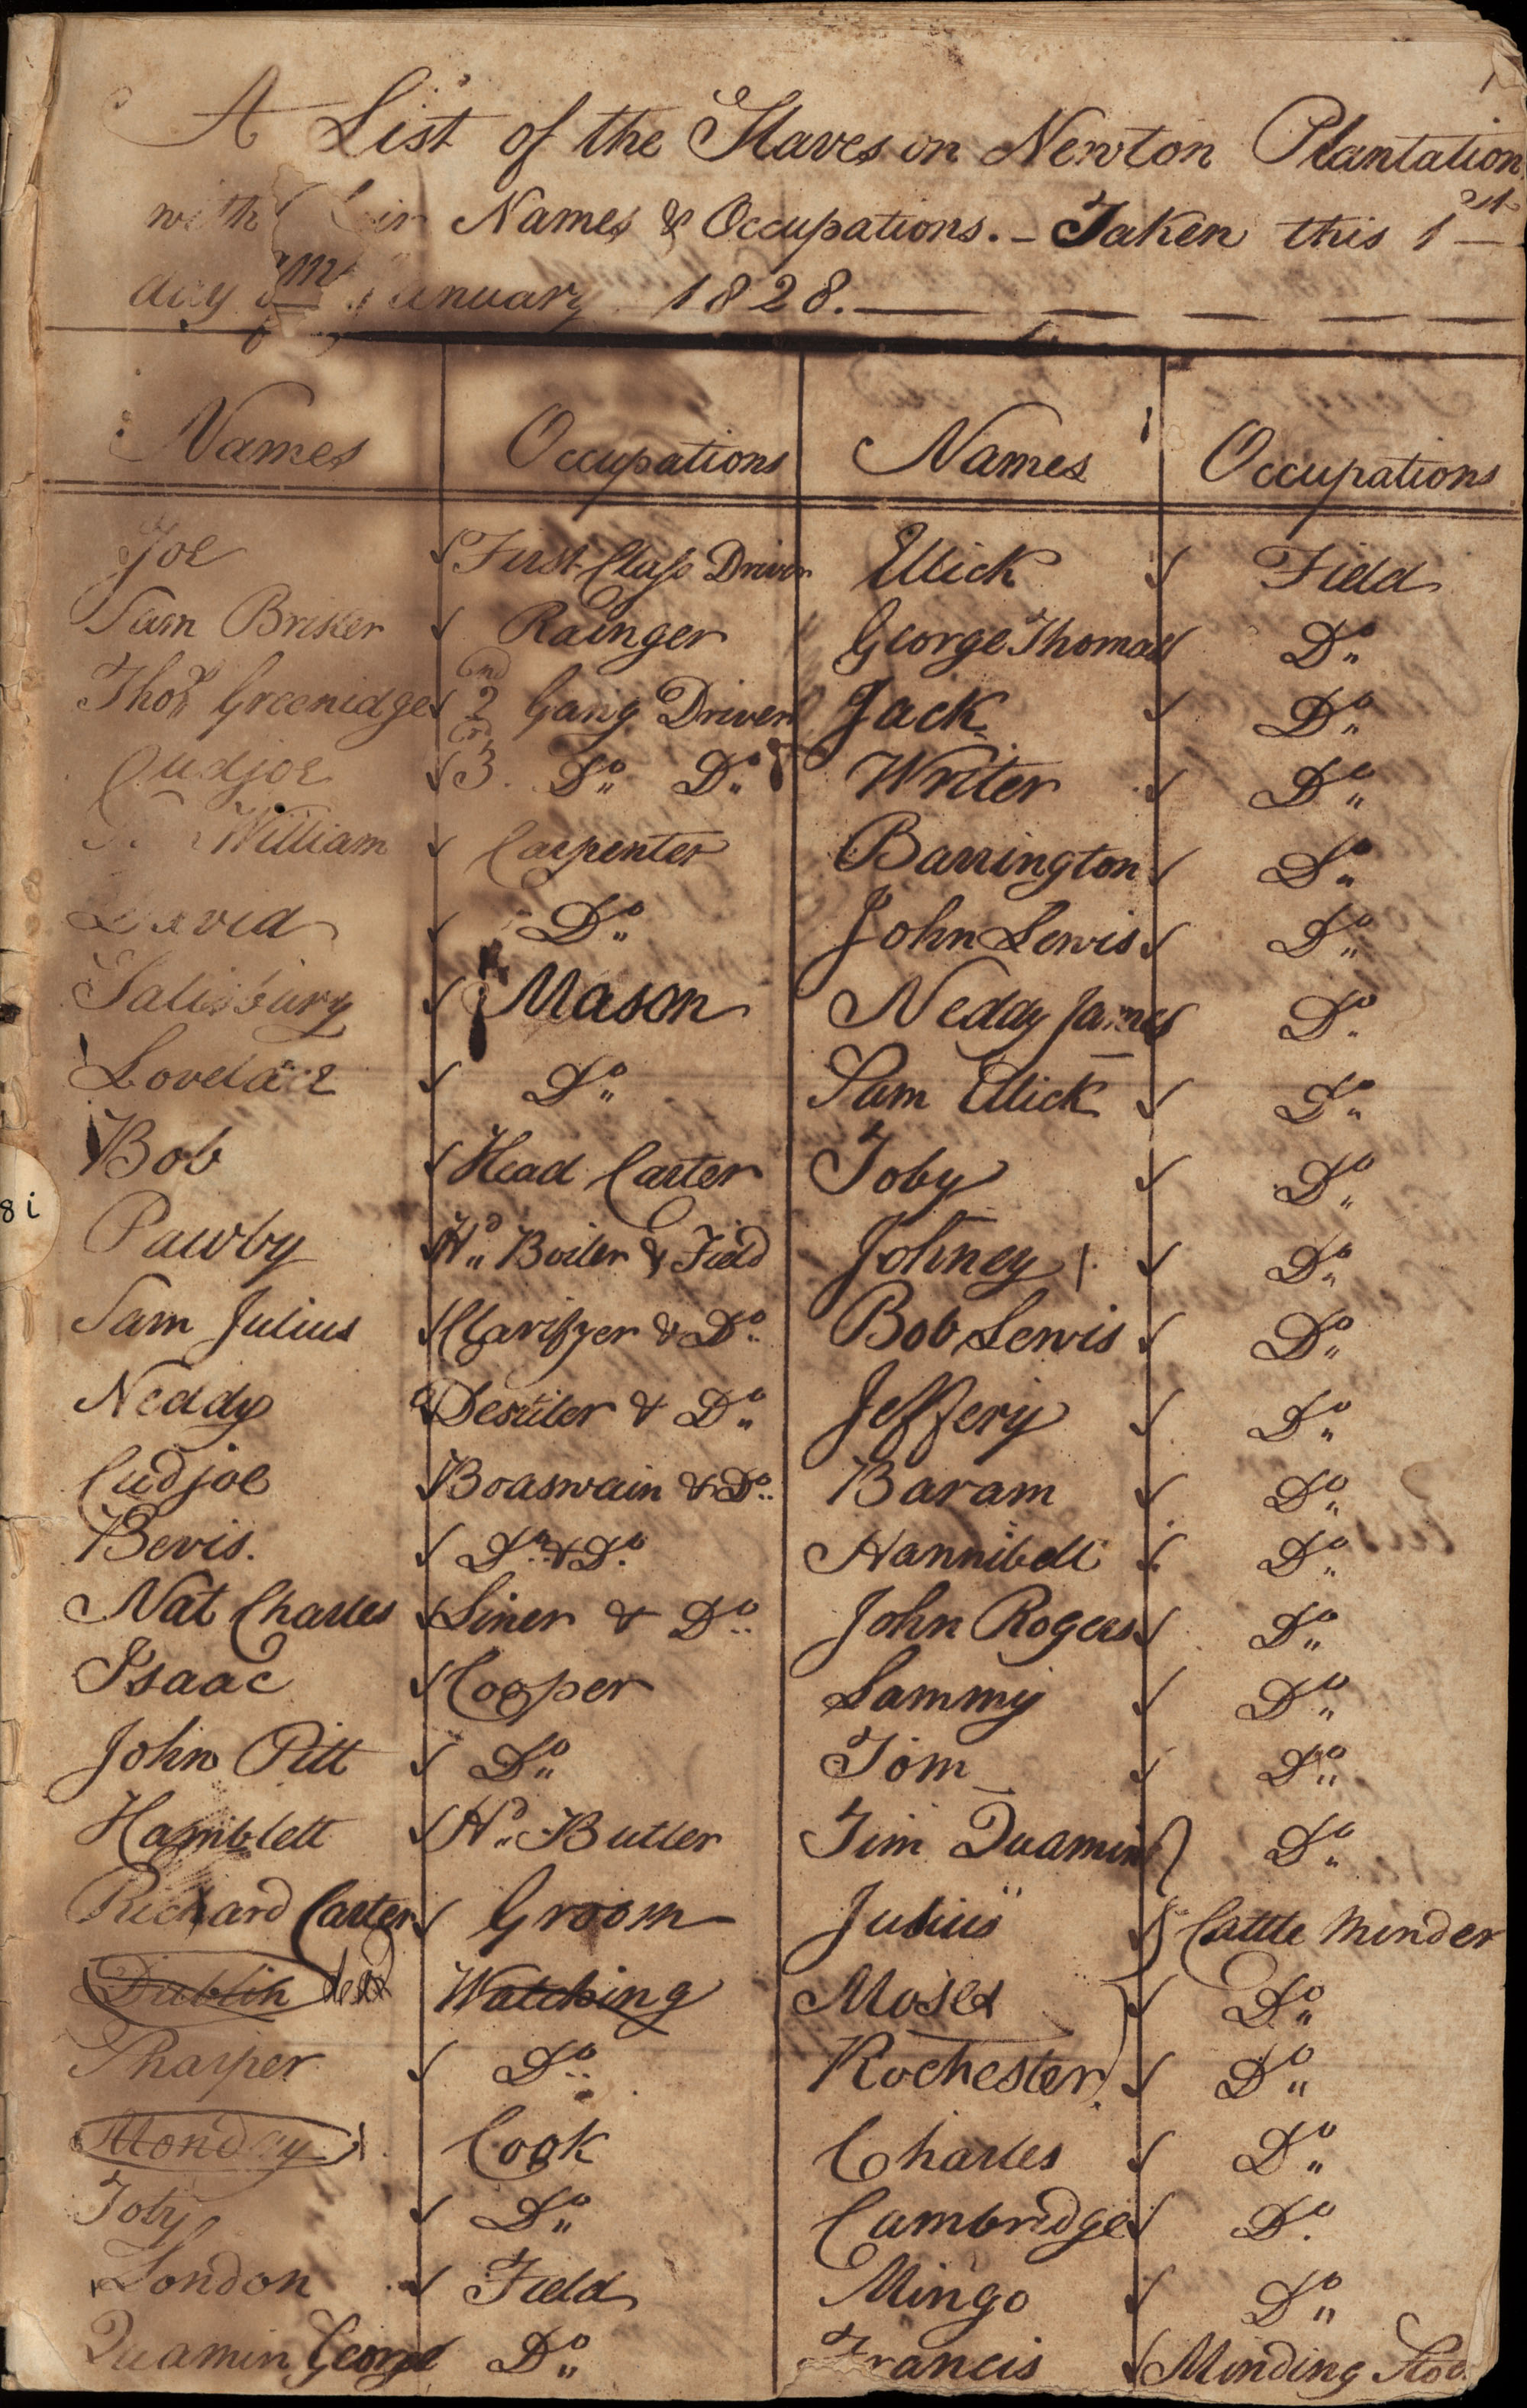 A List of the Slaves on Newton Plantation
with Names & Occupations. - Taken this 1st
day January 1828.
Names Occupations Names Occupations
Joe First Class Driver Ellick Field
Sam Brisker Rainger George Thomas Do
Thos Greenidge 2nd Gang Driver Jack Do
Cudjoe 3rd Do Do Writer Do
William Carpenter Barrington Do
David Do John Lewis Do
Salisbury Mason Neddy James Do
Lovelace Do Sam Ellick Do
Bob Head Carter Toby Do
Pawby Hd Boiler & Field Johney Do
Sam Julius Clarifyer & Do Bob Lewis Do
Neddy Destiler & Do Jeffery Do
Cudjoe Boaswain & Do Baram Do
Bevis. Do & Do Hannibell Do
Nat Charles Siner & Do John Rogers Do
Isaac Cooper Sammy Do
John Pitt Do Tom Do
Hamblett Hd Butler Jim Quamin Do
Richard Carter Groom Julius Cattle Minder
Dublin dead Watching Moses Do
Tharper Do Rochester Do
Monday Cook Charles Do
Toby Do Cambridge Do
London Field Mingo Do
Quamin George Do Francis Minding
8i